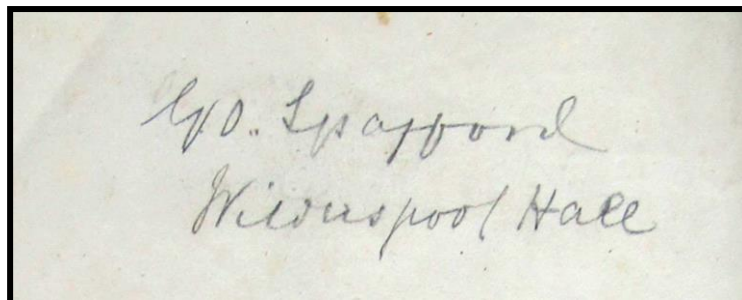 G.O. Spafford
Wilderspool Hall